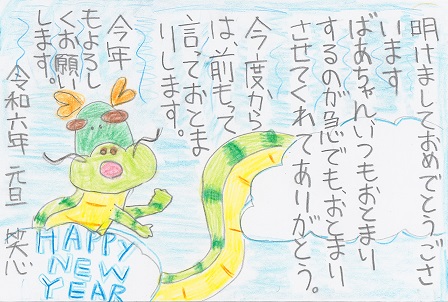 明けましておめでとうござ
います
ばあちゃんいつもおとまり
するのが急でも、おとまり
させてくれてありがとう。
今度から
は、前もって
言っておとま
りします。
今年
もよろし
くお願い
します。
令和六年 元旦 笑心
HAPPY
NEW
YEAR